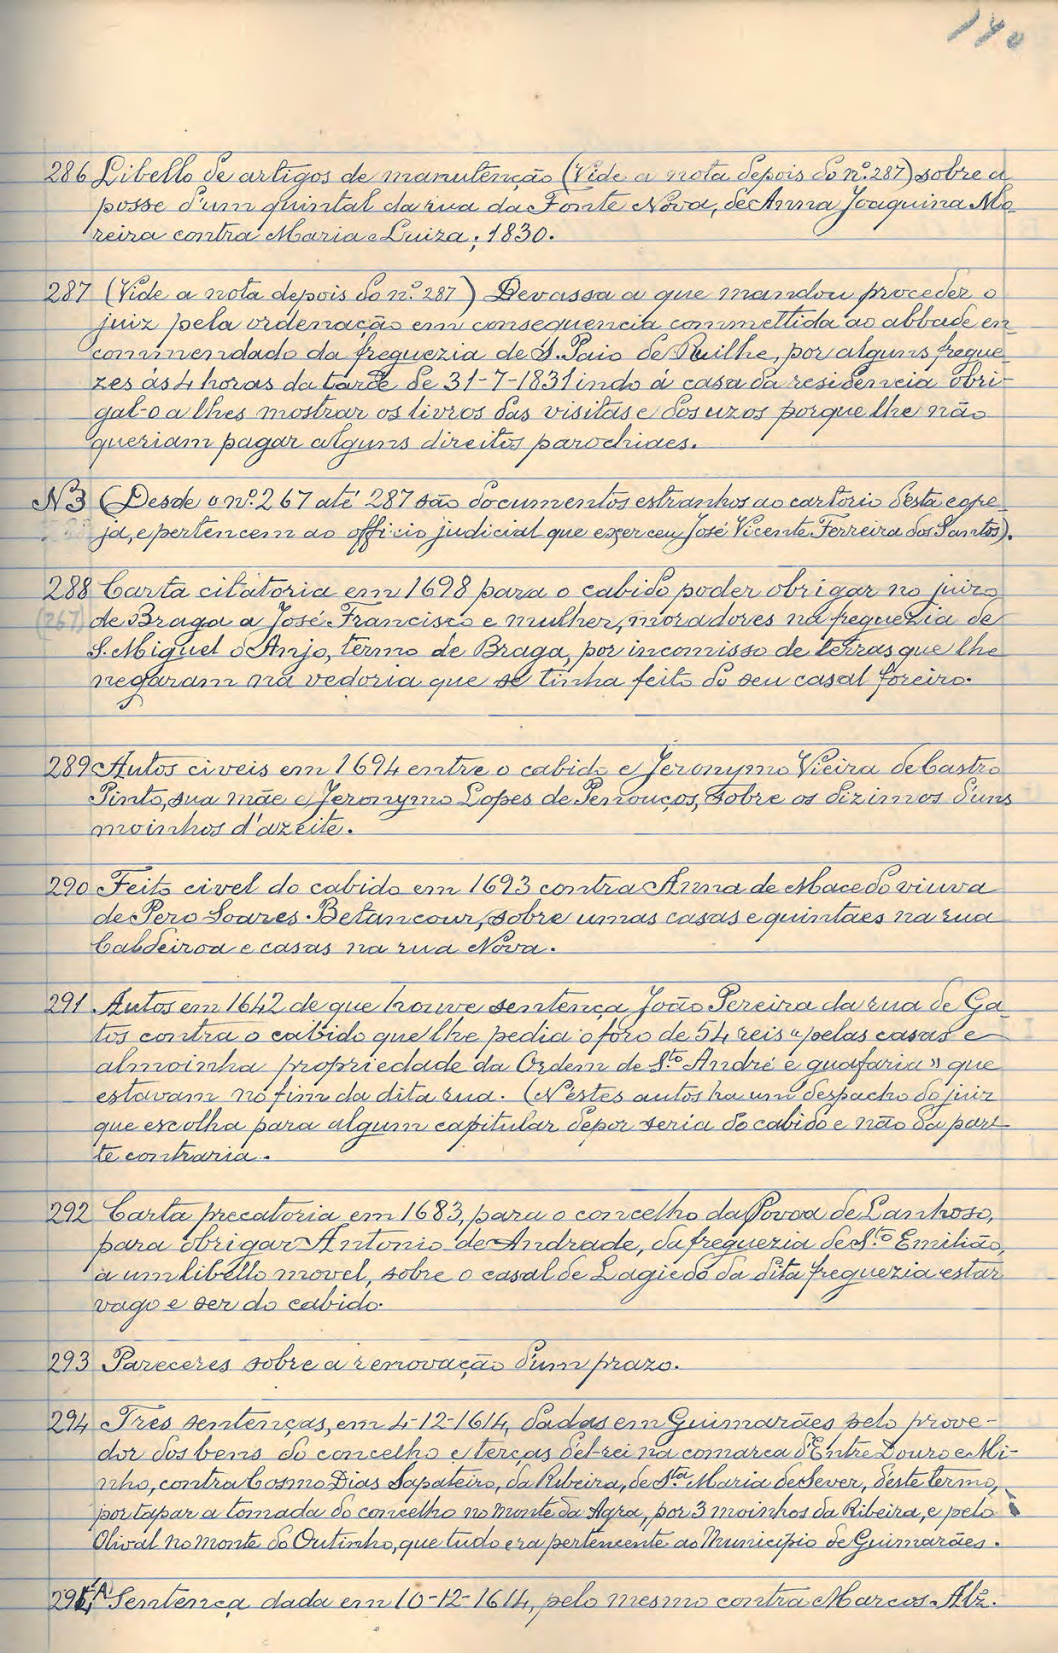 140
286 Libello de artigos de manutenção (Vide a nota depois do nº. 287) sobre a
posse d'um quintal da rua da Fonte Nova, de Anna Joaquina Mo-
reira contra Maria Luiza; 1830.
287 (Vide a nota depois do nº. 287) Devassa a que mandou proceder o
juiz pela ordenação em consequencia commettida ao abbade en-
commendado da freguezia de S. Paio de Ruilhe, por alguns fregue-
zes ás 4 horas da tarde de 31-7-1831 indo á casa da residencia obri-
gal-o a lhes mostrar os livros das visitas e dos uzos porque lhe não
queriam pagar alguns direitos parochiaes.
NB (Desde o nº. 267 até 287 são documentos estranhos ao cartorio d'esta egre-
ja, e pertencem ao officio judicial que exerceu José Vicente Ferreira dos Santos).
288 Carta citatoria em 1698 para o cabido poder obrigar no juizo
(267) de Braga a José Francisco e mulher, moradores na freguezia de
S. Miguel o Anjo, termo de Braga, por incomisso de terras que lhe
negaram na vedoria que se tinha feito do seu casal foreiro.
289 Autos civeis em 1694 entre o cabido e Jeronymo Vieira de Castro
Pinto, sua mãe e Jeronymo Lopes de Penouços, sobre os dizimos d'uns
moinhos d'azeite.
290 Feito civel do cabido em 1693 contra Anna de Macedo viuva
de Pero Soares Betancour, sobre umas casas e quintaes na rua
Caldeiroa e casas na rua Nova.
291 Autos em 1642 de que houve sentença João Pereira da rua de Ga-
tos contra o cabido que lhe pedia o foro de 54 reis «pelas casas e
almoinha propriedade da Ordem de Sto. André e guafaria» que
estavam no fim da dita rua. (N'estes autos ha um despacho do juiz
que escolha para algum capitular depor seria do cabido e não da par-
te contraria.
292 Carta precatoria em 1683, para o concelho da Povoa de Lanhoso,
para obrigar Antonio de Andrade, da freguezia de Sto. Emilião,
a um libello movel, sobre o casal de Lagiedo da dita freguezia estar
vago e ser do cabido.
293 Pareceres sobre a renovação d'um prazo.
294 Tres sentenças, em 4-12-1614, dadas em Guimarães pelo prove-
dor dos bens do concelho e terças d'el-rei na comarca d'Entre Douro e Mi-
nho, contra Cosmo Dias Sapateiro, da Ribeira, de Sta. Maria de Sever, d'este termo,
por tapar a tomada do concelho no Monte da Agra, por 3 moinhos da Ribeira, e pelo
Olival no Monte do Outinho, que tudo era pertencente ao Municipio de Guimarães.
294(A) Sentença dada em 10-12-1614, pelo mesmo contra Marcos Alz.